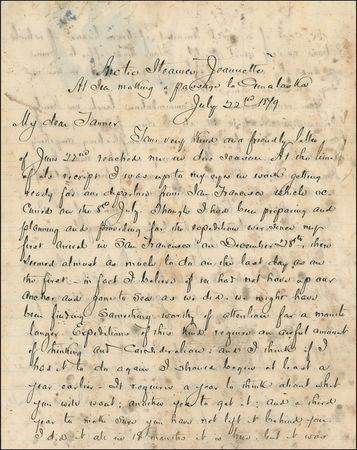 Arctic Steamer Jeannette
At Sea making a passage to Ounalaska
July 22nd 1879
My dear Tanner
Your very kind and friendly letter
of June 22nd reached me in due season. At the time
of its receipt I was up to my eyes in work getting
ready for our departure from San Francisco which oc
curred on the 8th July. Though I had been preparing and
planning and providing for the expedition ever since my
first arrival in San Francisco on December 28th, there
seemed almost as much to do on the last day as on
the first - in fact I believe if we had not hove up our
anchor and gone to sea as we did we might have
been finding something worthy of attention for a month
longer. Expeditions of this kind require an awful amount
of thinking and consideration: and I think if I
had it to do again I should begin at least a
year earlier. It requires a year to think about what
you will want; another year to get it; and a third
year to make sure you have not left it behind you
I did it all in 18 months it is true, but it was